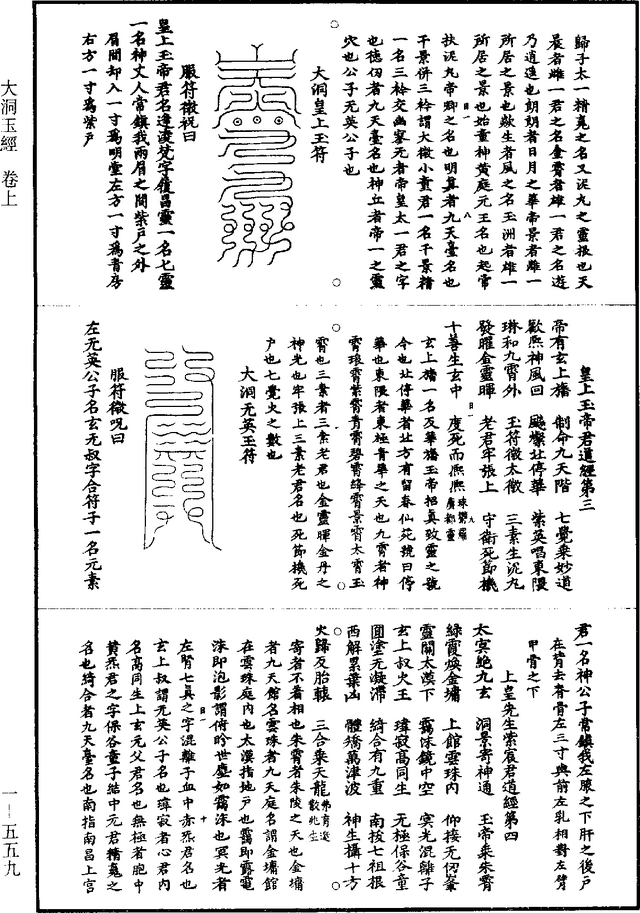 大洞玉經 卷上
一—五五九
歸子太一精魂之名又泥丸之靈根也天
晨者雌一君之名金霄者雄一君之名遊
乃逍遙也朗朗者日月之華帝景者雌一
所居之景也歘生者風之名玉洲者雄一
所居之景也始童神黃庭元王名也起常
扶泥丸帝卿之名也明真者九天臺名也
千景併三衿謂大微小童君一名千景精
一名三衿交幽寥无者帝皇太一君之字
也德仞者九天臺名也神立者帝一之靈
穴也公子无英公子也
大洞皇上玉符
服符微祝曰
皇上玉帝君名逮漠梵字履昌靈一名七靈
一名神丈人常鎮我兩眉之間紫戶之外
眉間却入一寸為明堂左方一寸為青房
右方一寸為紫戶
皇上玉帝君道經第三
帝有玄上旛 制命九天階 七覺乘妙道
歡熙神風回 颰燦北停華 紫英唱東隁
琳和九霄外 玉符徵太微 三素生泥丸
發曜金靈暉 老君牢張上 守衛死節機
十善生玄中 度死而熙熙
玄上旛一名反華旛玉帝招真致靈之號
今也北停華者北方有留春仙苑號曰停
華也東隁者東極青華之天也九霄者神
霄琅霄紫霄青霄碧霄絳霄景霄太霄玉
霄也三素者三素老君也金靈暉金丹之
神光也牢張上三素老君名也死節機死
戶也七覺火之數也
大洞无英玉符
服符微呪曰
左无英公子名玄无叔字合符子一名元素
君一名神公子常鎮我左腋之下肝之後戶
在背去脊骨左三寸與前左乳相對左臂
甲骨之下
上皇先生紫晨君道經第四
太冥絕九玄 洞景寄神通 玉帝乘朱霄
綠霞煥金墉 上館雲珠內 仰接无仞峯
靈關太漠下 靄沫鏡中空 冥光混離子
玄上叔火王 瑋寂高同生 无極保谷童
圓塗无凝滯 綺合有九重 南拔七祖根
西解累葉凶 體矯萬津波 神生攝十方
火歸反胎輳 三合乘天龍
寄者不着相也朱霄者朱陵之天也金墉
者九天館名雲珠者九天庭名謂金墉館
在雲珠庭內也太漠指地戶也靄即露電
沫即泡影謂俯盻世塵如靄沫也冥光者
左腎七真之字混離子血中赤炁君名也
玄上叔謂无英公子名也瑋寂者心君內
名高同生上玄元父君名也無極者胞中
黄炁君之字保谷童子結中元君精魂之
名也綺合者九天臺名也南指南昌上宮